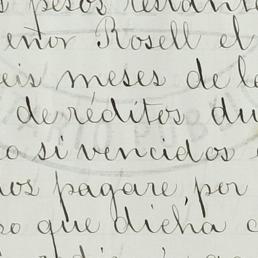 pesos restante
eñor Rosell el
eis meses de
de réditos du
o si vencidos
nos pagare, por
so que dicha c